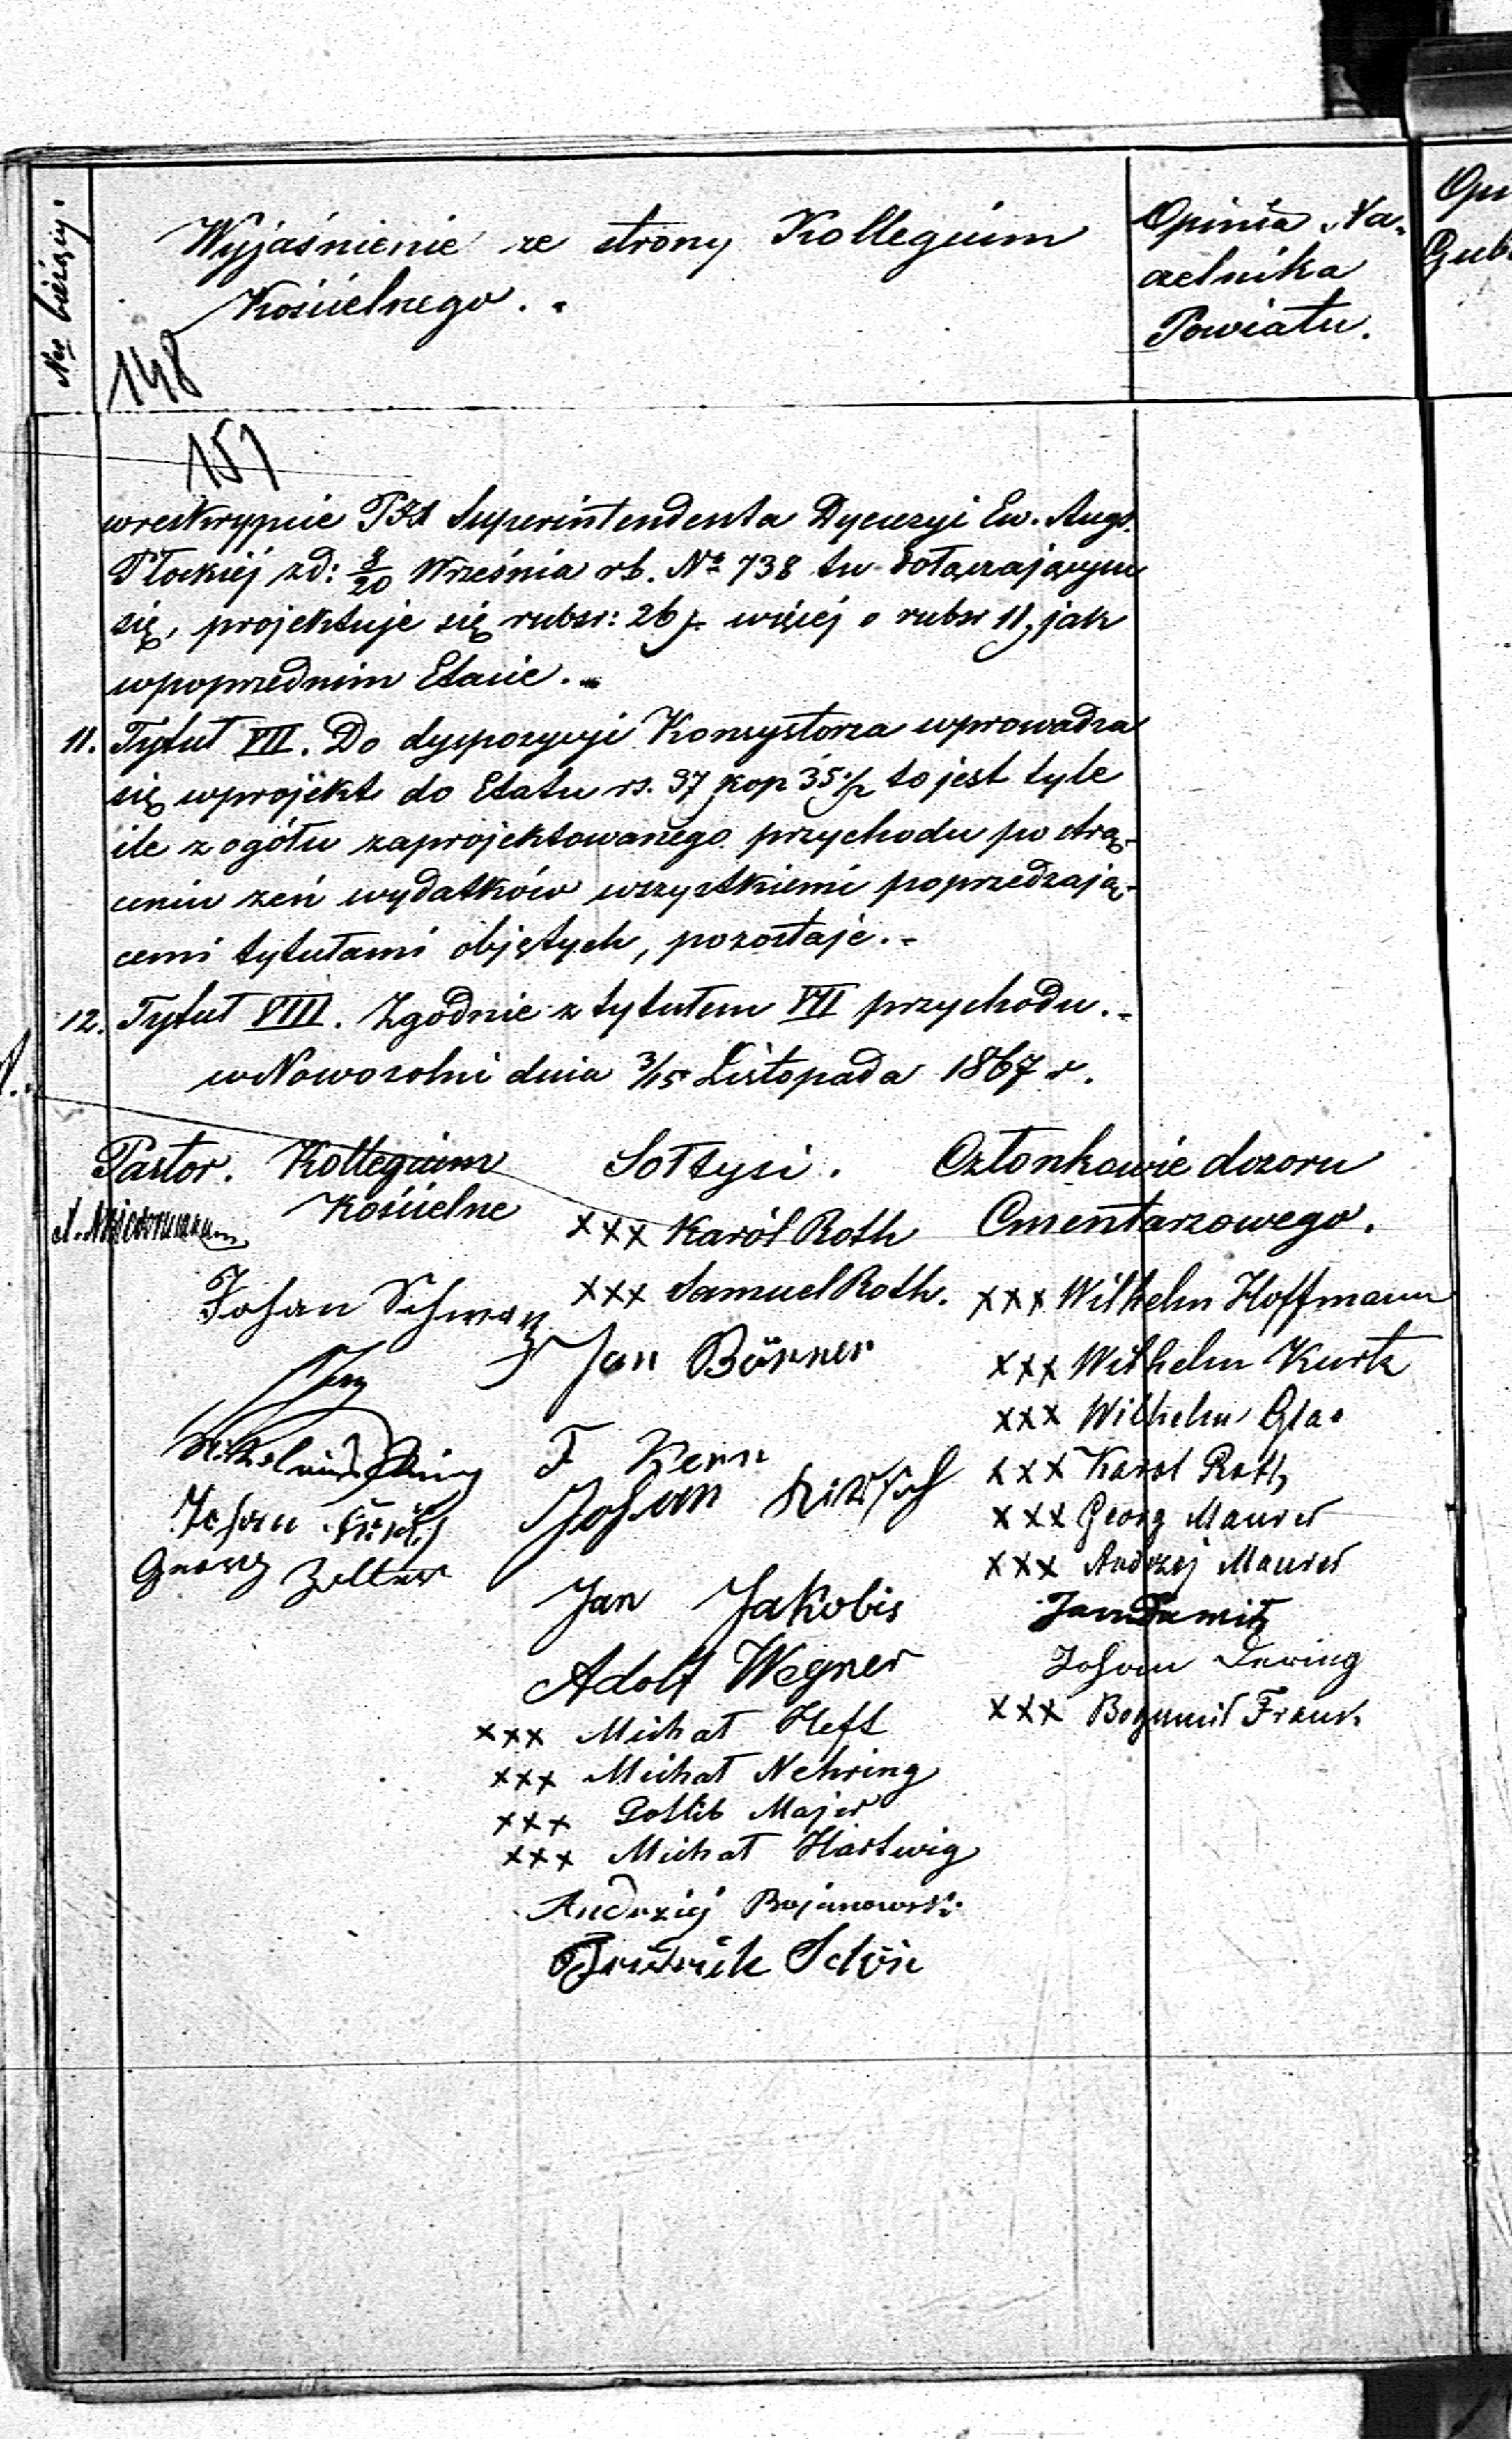 Nr bieżący.
Wyjaśnienie ze strony Kollegium
Kościelnego.
Opinia Na-
czelnika
Powiatu.
148
151
wreskrypcie Superintendenta Dyecezyi Ew. Augs.
Płockiéj zd: 8/20 Września rb. № 738 tu dołączającym
się, projektuje się rubsr: 26 więcéj o rubsr 11, jak
wpoprzednim Etacie.
11. Tytuł VII. Do dyspozycyi Konsystorza wprowadza
się wprojekt do Etatu rs. 37 kop 35½ to jest tyle
ile z ogółu zaprojektowanego przychodu po strą-
ceniu zeń wydatków wszystkiemi poprzedzają-
cemi tytułami objętych, pozostaje.
12. Tytuł VIII. Zgodnie z tytułem VII przychodu.
w Nowosolni dnia 3/15 Listopada 1867 r.
Pastor. Kollegium Sołtysi. Członkowie dozoru
Kościelne Cmentarzowego.
xxx Karól Roth
Johan Schwarz xxx Samuel Roth. xxx Wilhelm Hoffmann
Jan Börner xxx Wilhelm Kurtz
xxx Wilhelm Glas
F Kern xxx Karol Roth
Johan Johan xxx Georg Maurer
Georg Zeller xxx Andrzej Maurer
Jan Jakobis Jan
Adolf Wegner Johan Dering
xxx Michał Heft xxx Bogumił Frank
xxx Michał Nehring
xxx Gotlib Majer
xxx Michał Hartwig
Andrzej Bojanowski
Fridrich Schön